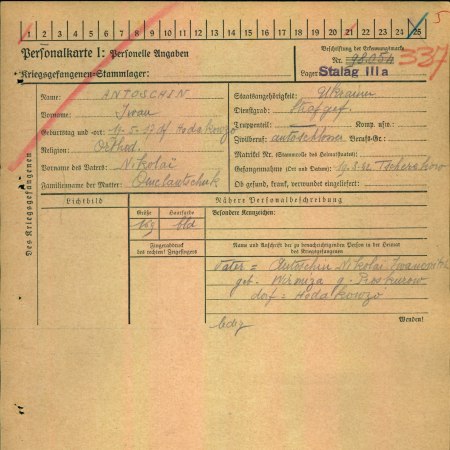 1 2 3 4 5 6 7 8 9 10 11 12 13 14 15 16 17 18 19 20 21 22 23 24 25
5
Personalkarte I: Personelle Angaben
Beschriftung der Erkennungsmarke
Nr. 98054 337
Kriegsgefangenen-Stammlager:
Lager Stalag IIIa
Des Kriegsgefangenen
Name: ANTOSCHIN
Staatsangehörigkeit: Ukrainer
Vorname: Iwan
Dienstgrad:
Geburtstag und -ort: 17.5.17 df Hodakowzo
Truppenteil: Komp. usw.:
Religion: Orthod.
Zivilberuf: Berufs-Gr.:
Vorname des Vaters: Nikolaï
Matrikel Nr. (Stammrolle des Heimatstaates):
Gefangennahme (Ort und Datum):
Familienname der Mutter:
Ob gesund, krank, verwundet eingeliefert:
Lichtbild
Nähere Personalbeschreibung
Größe Haarfarbe Besondere Kennzeichen:
bld
Fingerabdruck
des rechten! Zeigefingers
Name und Anschrift der zu benachrichtigenden Person in der Heimat
des Kriegsgefangenen
Vater = Antoschin Nikolai
geb. g. Proskurow
dorf = Hodakowzo
ledig
Wenden!